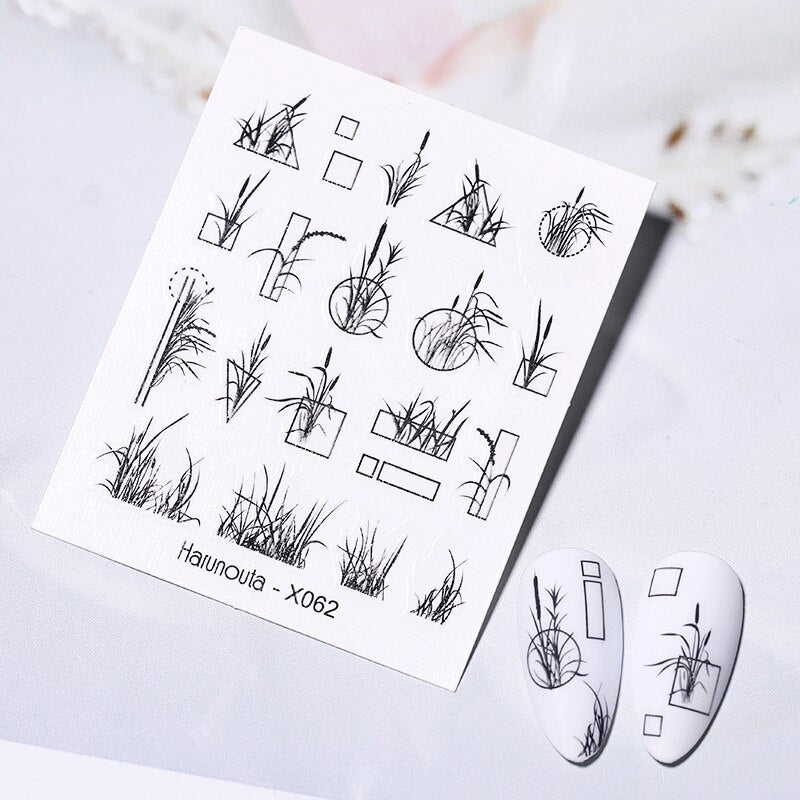 Harunouta - X062